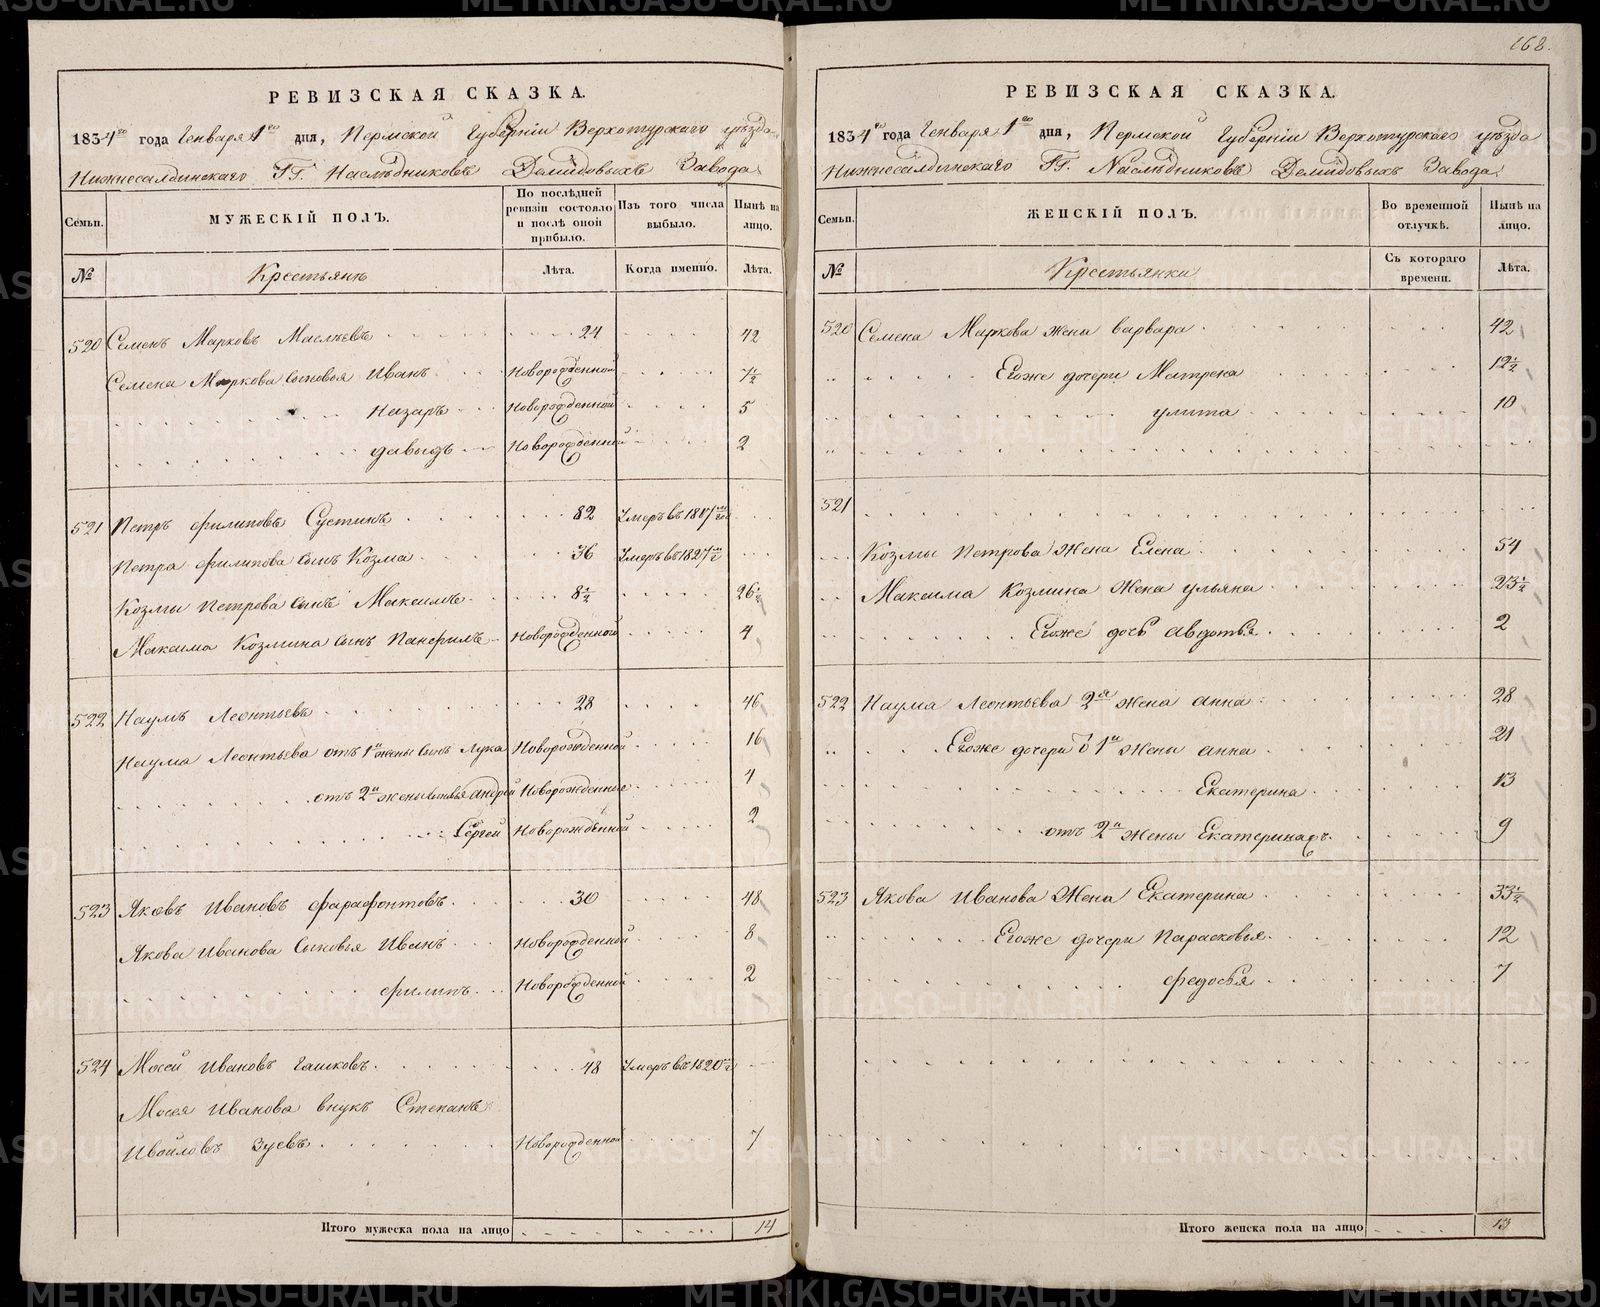 168.
РЕВИЗСКАЯ СКАЗКА.
1834го года Генваря 1го дня, Пермской Губерніи Верхотурскаго уѣзда
Нижнесалдинскаго ГГ. Наслѣдниковъ Демидовыхъ Завода
Семьи.
МУЖЕСКІЙ ПОЛЪ.
По послѣдней ревизіи состояло и послѣ оной прибыло.
Изъ того числа выбыло.
Нынѣ на лицо.
№
Крестьянѣ
Лѣта.
Когда именно.
Лѣта.
520 Семенъ Марковъ 24 42
Семена Маркова сыновья Иванъ Новорожденной 7½
Назаръ Новорожденной 5
давыдъ Новорожденной 2
521 Петръ филиповъ Сустинъ 82 Умеръ въ
Петра филипова сынъ Козма 36 Умеръ въ 1827
Козмы Петрова сынъ Максимъ 8½ 26½
Максима Козмина сынъ Панфилъ Новорожденного 4
522 Наумъ Леонтьевъ 28 46
Наума Леонтьева отъ 1й жены сынъ Лука Новорожденной 16
отъ 2й жены сыновья андрей Новорожденные 4
Сергей Новорожденной 2
523 Яковъ Ивановъ фарафонтовъ 30 48
Якова Иванова Сыновья Иванъ Новорожденной 8
филипъ Новорожденной 2
524 Мосей Ивановъ Гашковъ 48 Умеръ въ 1820
Мосея Иванова внукъ Степанъ
Ивойловъ Зуевъ Новорожденной 7
Итого мужеска пола на лицо 14
РЕВИЗСКАЯ СКАЗКА.
1834го года Генваря 1го дня, Пермской Губерніи Верхотурскаго уѣзда
Нижнесалдинскаго ГГ. Наслѣдниковъ Демидовыхъ Завода
Семьи.
ЖЕНСКІЙ ПОЛЪ.
Во временной отлучкѣ.
Нынѣ на лицо.
№
Крестьянки
Съ котораго времени.
Лѣта.
520 Семена Маркова жена варвара 42
Егоже дочери Матрена 12½
улита 10
521
Козмы Петрова Жена Елена 54
Максима Козмина Жена ульяна 23½
Егоже дочь авдотья 2
522 Наума Леонтьева 2я жена анна 28
Егоже дочери о 1й жены анна 21
Екатерина 13
отъ 2й жены Екатерина 9
523 Якова Иванова Жена Екатерина 33½
Егоже дочери Парасковья 12
федосья 7
Итого женска пола на лицо 13
METRIKI.GASO-URAL.RU